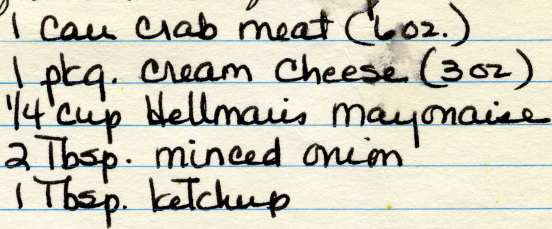 1 can crab meat (6 oz.)
1 pkg. cream cheese (3 oz)
1/4 cup Hellman's mayonaise
2 Tbsp. minced onion
1 Tbsp. ketchup